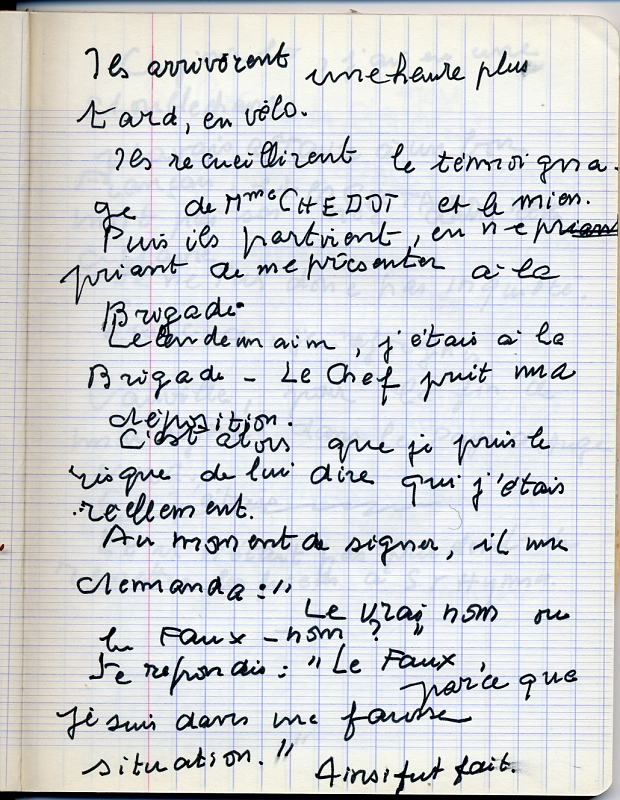 Ils arrivèrent une heure plus
tard, en vélo.
Ils recueillirent le témoigna-
ge de Mme CHEDOT et le mien.
Puis ils partirent, en me priant
priant de me présenter à la
Brigade.
Le lendemain, j'étais à la
Brigade - Le Chef prit ma
déposition.
C'est alors que je pris le
risque de lui dire qui j'étais
réellement.
Au moment de signer, il me
demanda : "
Le vrai nom ou
le Faux-nom ? "
Je répondis : " Le Faux,
parce que
je suis dans une fausse
situation. "
Ainsi fut fait.